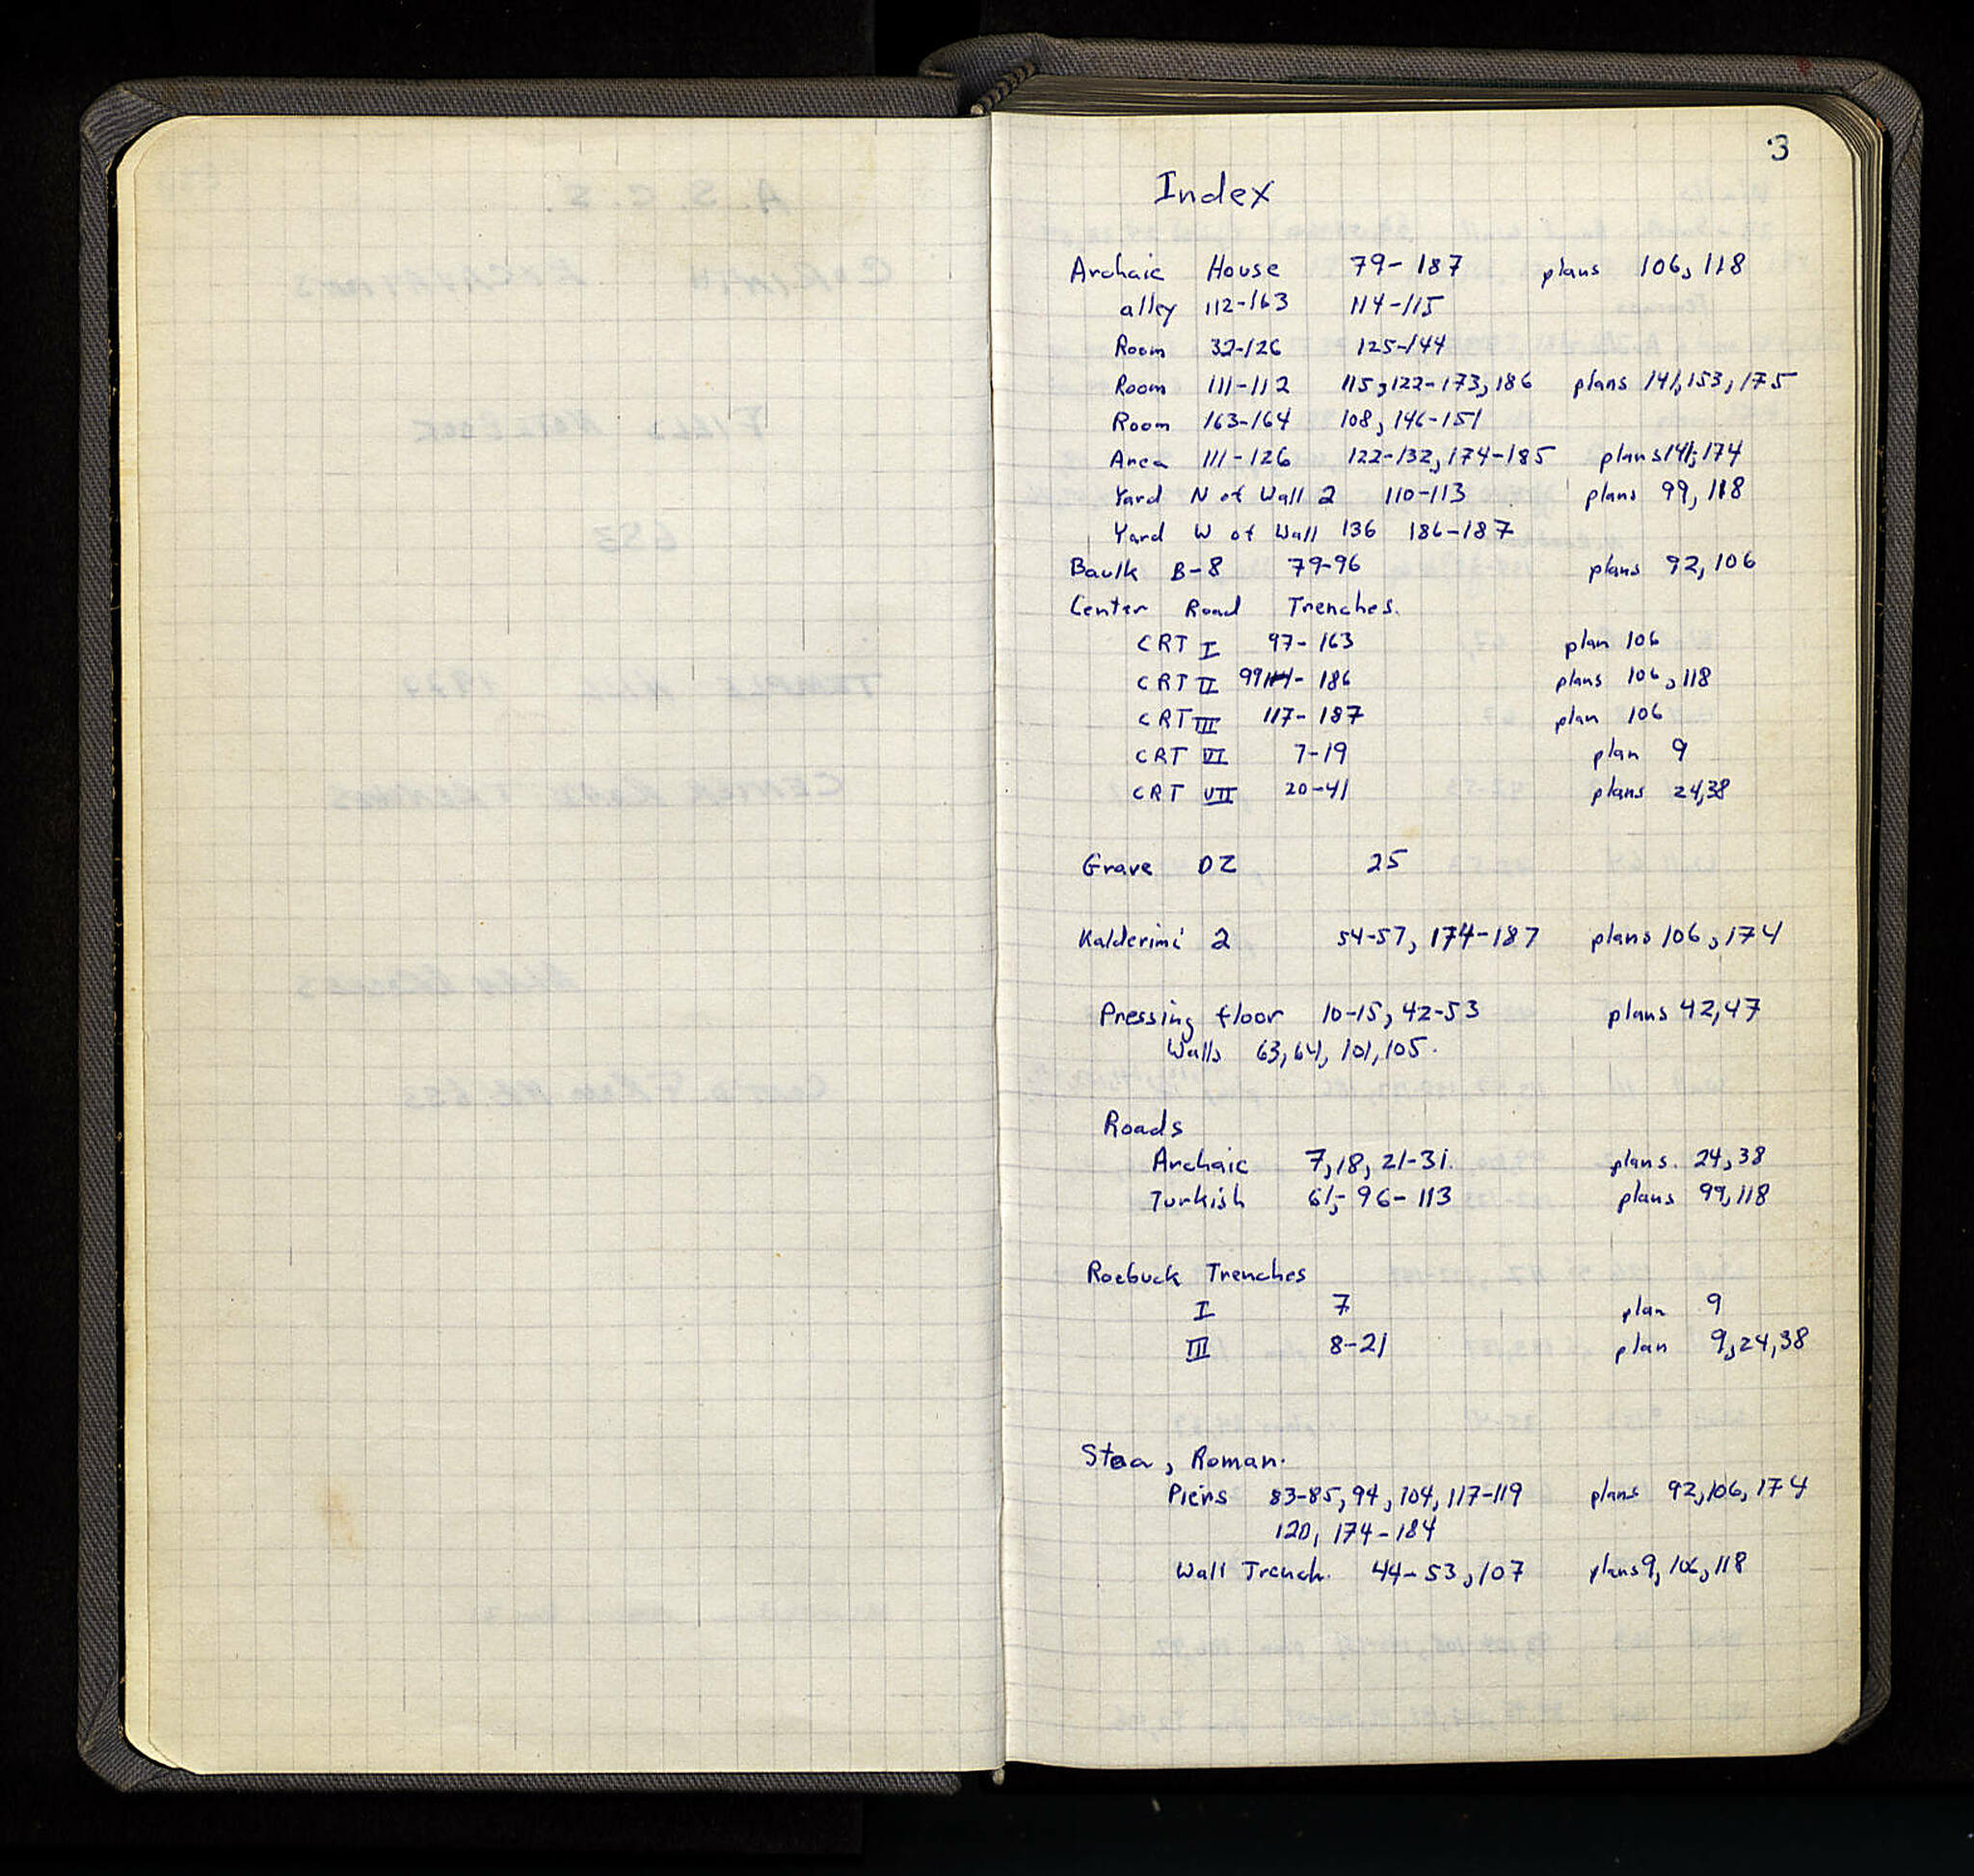 3
Index
Archaic House 79-187 plans 106, 118
alley 112-163 114-115
Room 32-126 125-144
Room 111-112 115, 122-173, 186 plans 141, 153, 175
Room 163-164 108, 146-151
Area 111-126 122-132, 174-185 plans 141, 174
Yard N of Wall 2 110-113 plans 99, 118
Yard W of Wall 136 186-187
Baulk B-8 79-96 plans 92, 106
Center Road Trenches.
CRT I 97-163 plan 106
CRT II 99- 186 plans 106, 118
CRT III 117-187 plan 106
CRT VI 7-19 plan 9
CRT VII 20-41 plans 24,38
Grave DZ 25
Kalderimi 2 54-57, 174-187 plans 106, 174
Pressing floor 10-15, 42-53 plans 42,47
Walls 63, 64, 101, 105.
Roads
Archaic 7, 18, 21-31. plans. 24, 38
Turkish 61, 96-113 plans 99, 118
Roebuck Trenches
I 7 plan 9
III 8-21 plan 9, 24, 38
Stoa, Roman.
Piers 83-85, 94, 104, 117-119 plans 92, 106, 174
120, 174-184
Wall Trench. 44-53, 107 plans 9, 106, 118